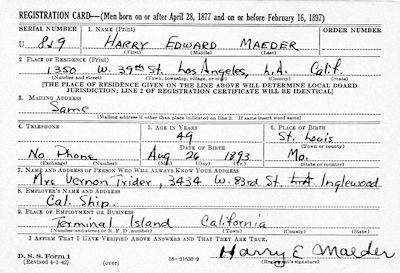 REGISTRATION CARD—(Men born on or after April 28, 1877 and on or before February 16, 1897)
SERIAL NUMBER 1. NAME (Print) ORDER NUMBER
U 829 HARRY EDWARD MAEDER
(First) (Middle) (Last)
2. PLACE OF RESIDENCE (Print)
1350 W. 39th St. Los Angeles, L.A. Calif.
(Number and street) (Town, township, village, or city) (County) (State)
[THE PLACE OF RESIDENCE GIVEN ON THE LINE ABOVE WILL DETERMINE LOCAL BOARD
JURISDICTION; LINE 2 OF REGISTRATION CERTIFICATE WILL BE IDENTICAL]
3. MAILING ADDRESS
Same
[Mailing address if other than place indicated on line 2. If same insert word same]
4. TELEPHONE 5. AGE IN YEARS 6. PLACE OF BIRTH
49 St. Louis
DATE OF BIRTH (Town or county)
No Phone Aug 26 1893 Mo.
(Exchange) (Number) (Mo.) (Day) (Yr.) (State or country)
7. NAME AND ADDRESS OF PERSON WHO WILL ALWAYS KNOW YOUR ADDRESS
Mrs Vernon Trider, 3434 W. 83rd St. L.A. Inglewood
8. EMPLOYER'S NAME AND ADDRESS
Cal. Ship.
9. PLACE OF EMPLOYMENT OR BUSINESS
Terminal Island California
(Number and street or R. F. D. number) (Town) (County) (State)
I AFFIRM THAT I HAVE VERIFIED ABOVE ANSWERS AND THAT THEY ARE TRUE.
D. S. S. Form 1
(Revised 4-1-42) (over) 16—21630-2 Harry E Maeder
(Registrant's signature)